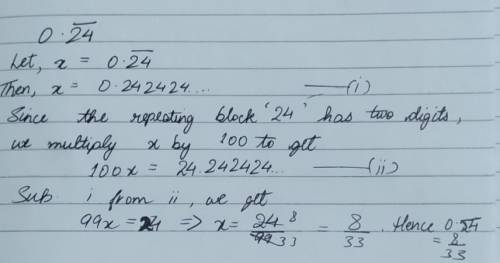 0.2̅4̅
Let, x = 0.2̅4̅
Then, x = 0.242424.... ——(i)
Since the repeating block '24' has two digits,
we multiply x by 100 to get
100x = 24.242424... ——(ii)
Sub. i from ii, we get
99x = 24 ⇒ x = 24 8 / 99 33 = 8/33 . Hence 0.2̅4̅
= 8/33